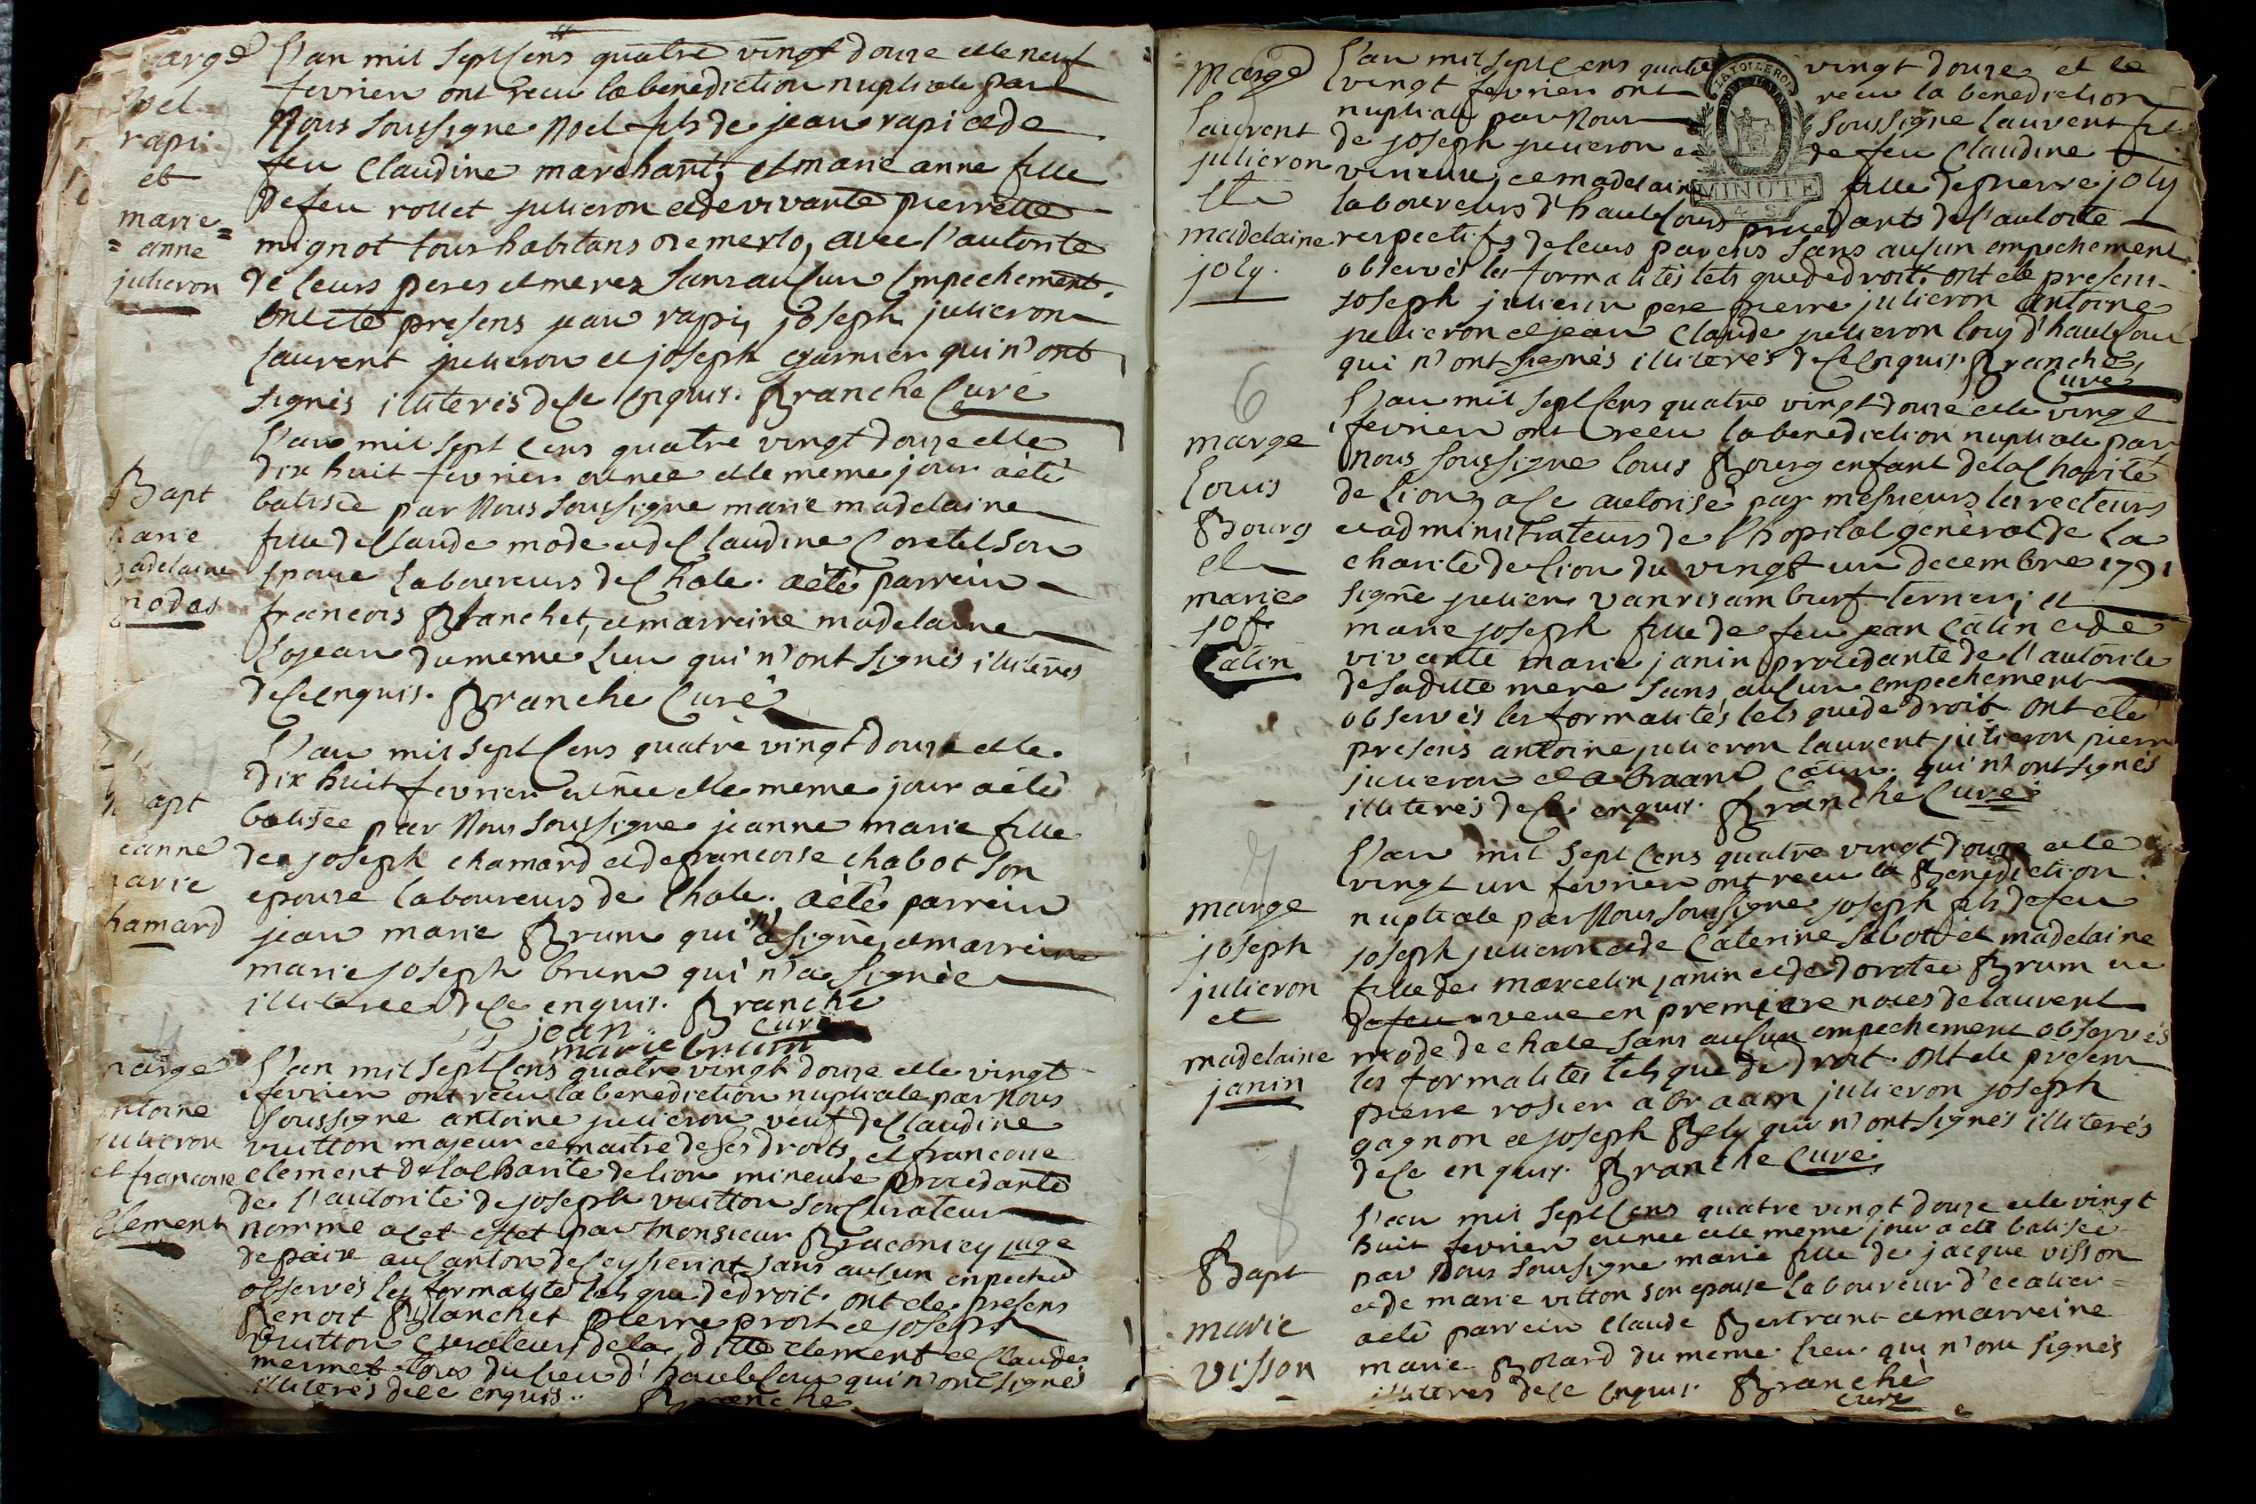 marge
Noel
rapi
et
marie=
=anne
julieron
L'an mil sept Cens quatre vingt douze et le neuf
fevrier ont recu la benediction nuptiale par
Nous Soussigne Noel fils de jean rapi et de
feu Claudine marchant, et marie anne fille
de feu rollet julieron et de vivante pierrette
mignot tous habitans de merlo, avec l'autorite
de leurs peres et meres Sans aucun Empechement.
Ont ete presens jean rapi, joseph julieron
Laurent julieron et joseph garnier qui n'ont
Signés illiterés de Ce Enquis. Branche Curé
Bapt
marie
madelaine
modas
L'an mil Sept Cens quatre vingt douze et le
dix huit fevrier et nee et le meme jour a èté
batisée par Nous Soussigne marie madelaine
fille de Claude mode et de Claudine Coretel Son
Epouse Laboureurs de Chale. a èté parrein
francois Blanchet, et marreine madelaine
Cojean du meme Lieu qui n'ont Signés illitérés
de Ce Enquis. Branche Curé
Bapt
jeanne
marie
chamard
L'an mil Sept Cens quatre vingt douze et le
dix huit fevrier et nee et le meme jour a èté
batisée par Nous Soussigne jeanne marie fille
de joseph chamard et de francoise chabot Son
epouse laboureurs de Chale. a èté parrein
jean marie Brun qui a Signé, et marreine
marie joseph brun qui n'a Signée
illiterée de Ce enquis. Branche
Curé
jean
marie brun
marge
antoine
julieron
et francoise
Clement
L'an mil Sept Cens quatre vingt douze et le vingt
fevrier ont recu la benediction nuptiale par Nous
Soussigne antoine julieron veuf de Claudine
vuitton majeur et maitre de Ses droits, et francoise
Clement de la Charite de lion mineure procedante
de l'autorité de joseph vuitton Son Curateur
Nommé a Cet effet par Monsieur Braconier juge
de paix au Canton de Ceyseriat Sans aucun enpeched
observés les formalités tels que de droit. ont ete presens
Benoit Blanchet pierre prost et joseph
vuitton Curateur de la ditte Clement et Claude
mermet tous du lieu d'hautecour qui n'ont Signés
illiterés de Ce enquis. Branche
marge
Laurent
julieron
et
madelaine
joly.
LA LOI LE ROI
MINUTE
4 S.
L'an mil Sept Cens quatre vingt douze et le
vingt fevrier ont recu la benediction
nuptiale par Nous Soussigne Laurent fil
de joseph julieron et de feu Claudine
et madelaine fille de pierre joly
laboureurs d'hautecour procedants de l'autorite
respectif, de leurs parens Sans aucun empechement
observés les formalités tels que de droit. ont ete presens
joseph julieron pere pierre julieron antoine
julieron et jean Claude julieron tous d'hautecour
qui n'ont Signés illiterés de Ce Enquis. Branche
Curé
6
marge
Louis
Bourg
et
marie
jos.
Catin
L'an mil Sept Cens quatre vingt douze et le vingt
fevrier ont recu la benediction nuptiale par
Nous Soussigne louis Bourg enfant de la Charité
de Lion, a Ce autorisé par messieurs les recteurs
et administrateurs de l'hopital général de la
charité de lion du vingt un decembre 1791
Signé julien et
marie joseph fille de feu jean Catin et de
vivante marie janin procedante de l'autorite
de Saditte mere Sans aucun empechement
observés les formalités tels que de droit. ont ete
presens antoine julieron laurent julieron pierre
julieron et abraam Catin. qui n'ont Signés
illiterés de Ce enquis. Branche Curé
7
marge
joseph
julieron
et
madelaine
janin
L'an mil Sept Cens quatre vingt douze et le
vingt un fevrier ont recu la Benediction
nuptiale par Nous Soussigne joseph fils de feu
joseph julieron et de Caterine Sibot et madelaine
fille de marcelin janin et de dorotee Brun
de feu veve en premiere noces de laurent
mode de chale Sans aucun empechement observés
les formalités tels que de droit. ont ete presens
pierre rosier abraam julieron joseph
gagnon et joseph Bely qui n'ont Signés illiterés
de Ce enquis. Branche Curé
8
Bapt
marie
visson
L'an mil Sept Cens quatre vingt douze et le vingt
huit fevrier et nee et le meme jour a ete batisée
par Nous Soussigne marie fille de jacque visson
et de marie vitton son epouse laboureur
a èté parrein Claude Bertrant et marreine
marie Bolard du meme lieu qui n'ont Signés
illiterés de Ce Enquis. Branche
Curé